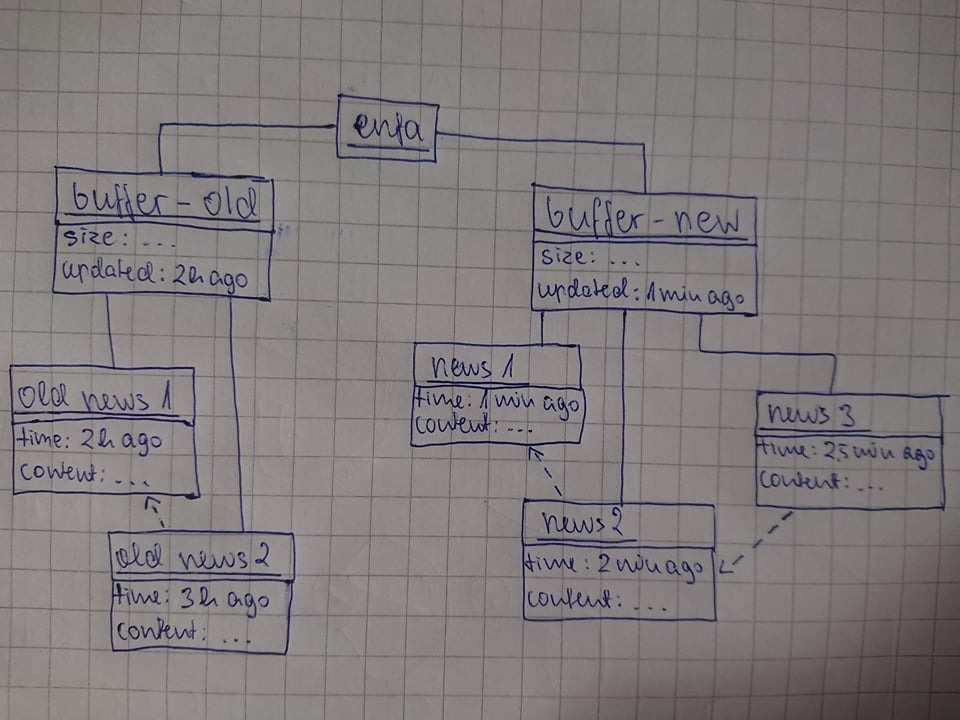 enfa
buffer-old
size: ...
updated: 2h ago
buffer-new
size: ...
updated: 1 min ago
old news 1
time: 2h ago
content: ...
old news 2
time: 3h ago
content: ...
news 1
time: 1 min ago
content: ...
news 2
time: 2 min ago
content: ...
news 3
time: 2,5 min ago
content: ...